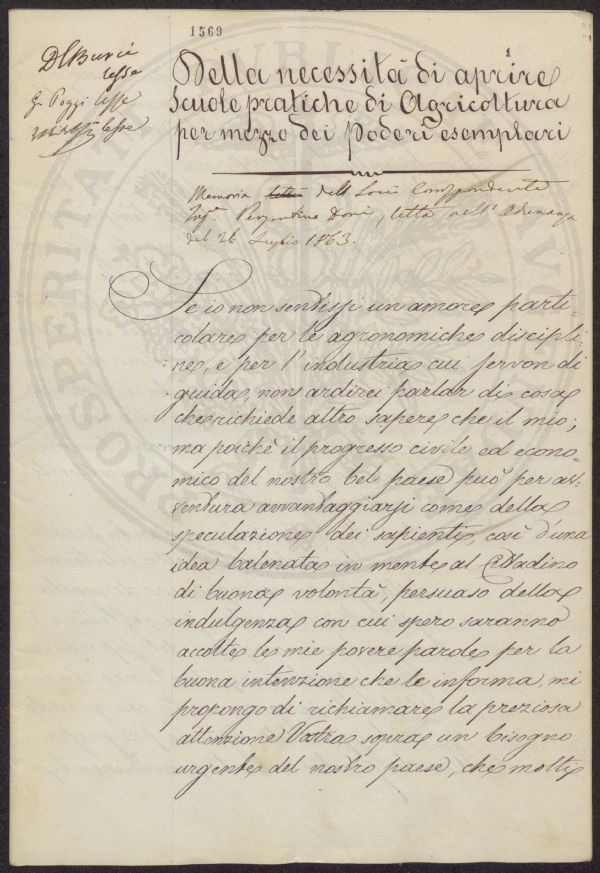 1569
1
Della necessità di aprire
Scuole pratiche di Agricoltura
per mezzo dei Poderi esemplari
Memoria letta dell Socio Corrispondente
Ing.e Doni, letta nell'Adunanza
del 26 Luglio 1863.
Se io non sentissi un amore parti-
colare per le agronomiche discipli-
ne, e per l'industria cui servon di
guida, non ardirei parlar di cosa
che richiede altro sapere che il mio;
ma poichè il progresso civile ed econo-
mico del nostro bel paese può per av-
ventura avvantaggiarsi come della
speculazione dei sapienti, così d'una
idea balenata in mente al Cittadino
di buona volontà, persuaso della
indulgenza con cui spero saranno
accolte le mie povere parole per la
buona intenzione che le informa, mi
propongo di richiamare la preziosa
attenzione Vostra sopra un bisogno
urgente del nostro paese, che molti